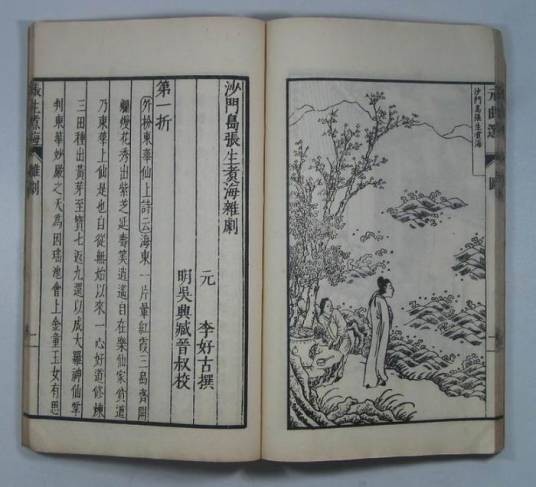 元曲選
圖
沙門島張生煮海
沙門島張生煮海雜劇
元 李好古撰
明吳興臧晉叔校
第一折
外扮東華仙上詩云海東一片暈紅霞三島齊開
爛熳花秀出紫芝延壽筭逍遙自在樂仙家貧道
乃東華上仙是也自從無始以來一心好道修煉
三田種出黃芽至寶七返九還以成大羅神仙掌
判東華妙嚴之天為因瑤池會上金童玉女有思
張生煮海
雜劇
一